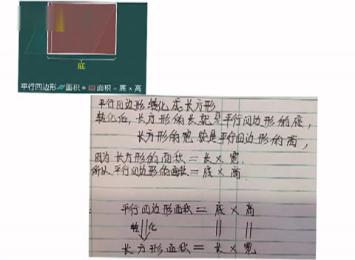 底
平行四边形 面积= 面积=底×高
平行四边形转化成长方形
转化后,长方形的长就是平行四边形的底,
长方形的宽就是平行四边形的高,
因为长方形的面积=长×宽
所以平行四边形的面积=底×高
平行四边形面积=底×高
转化
长方形面积=长×宽